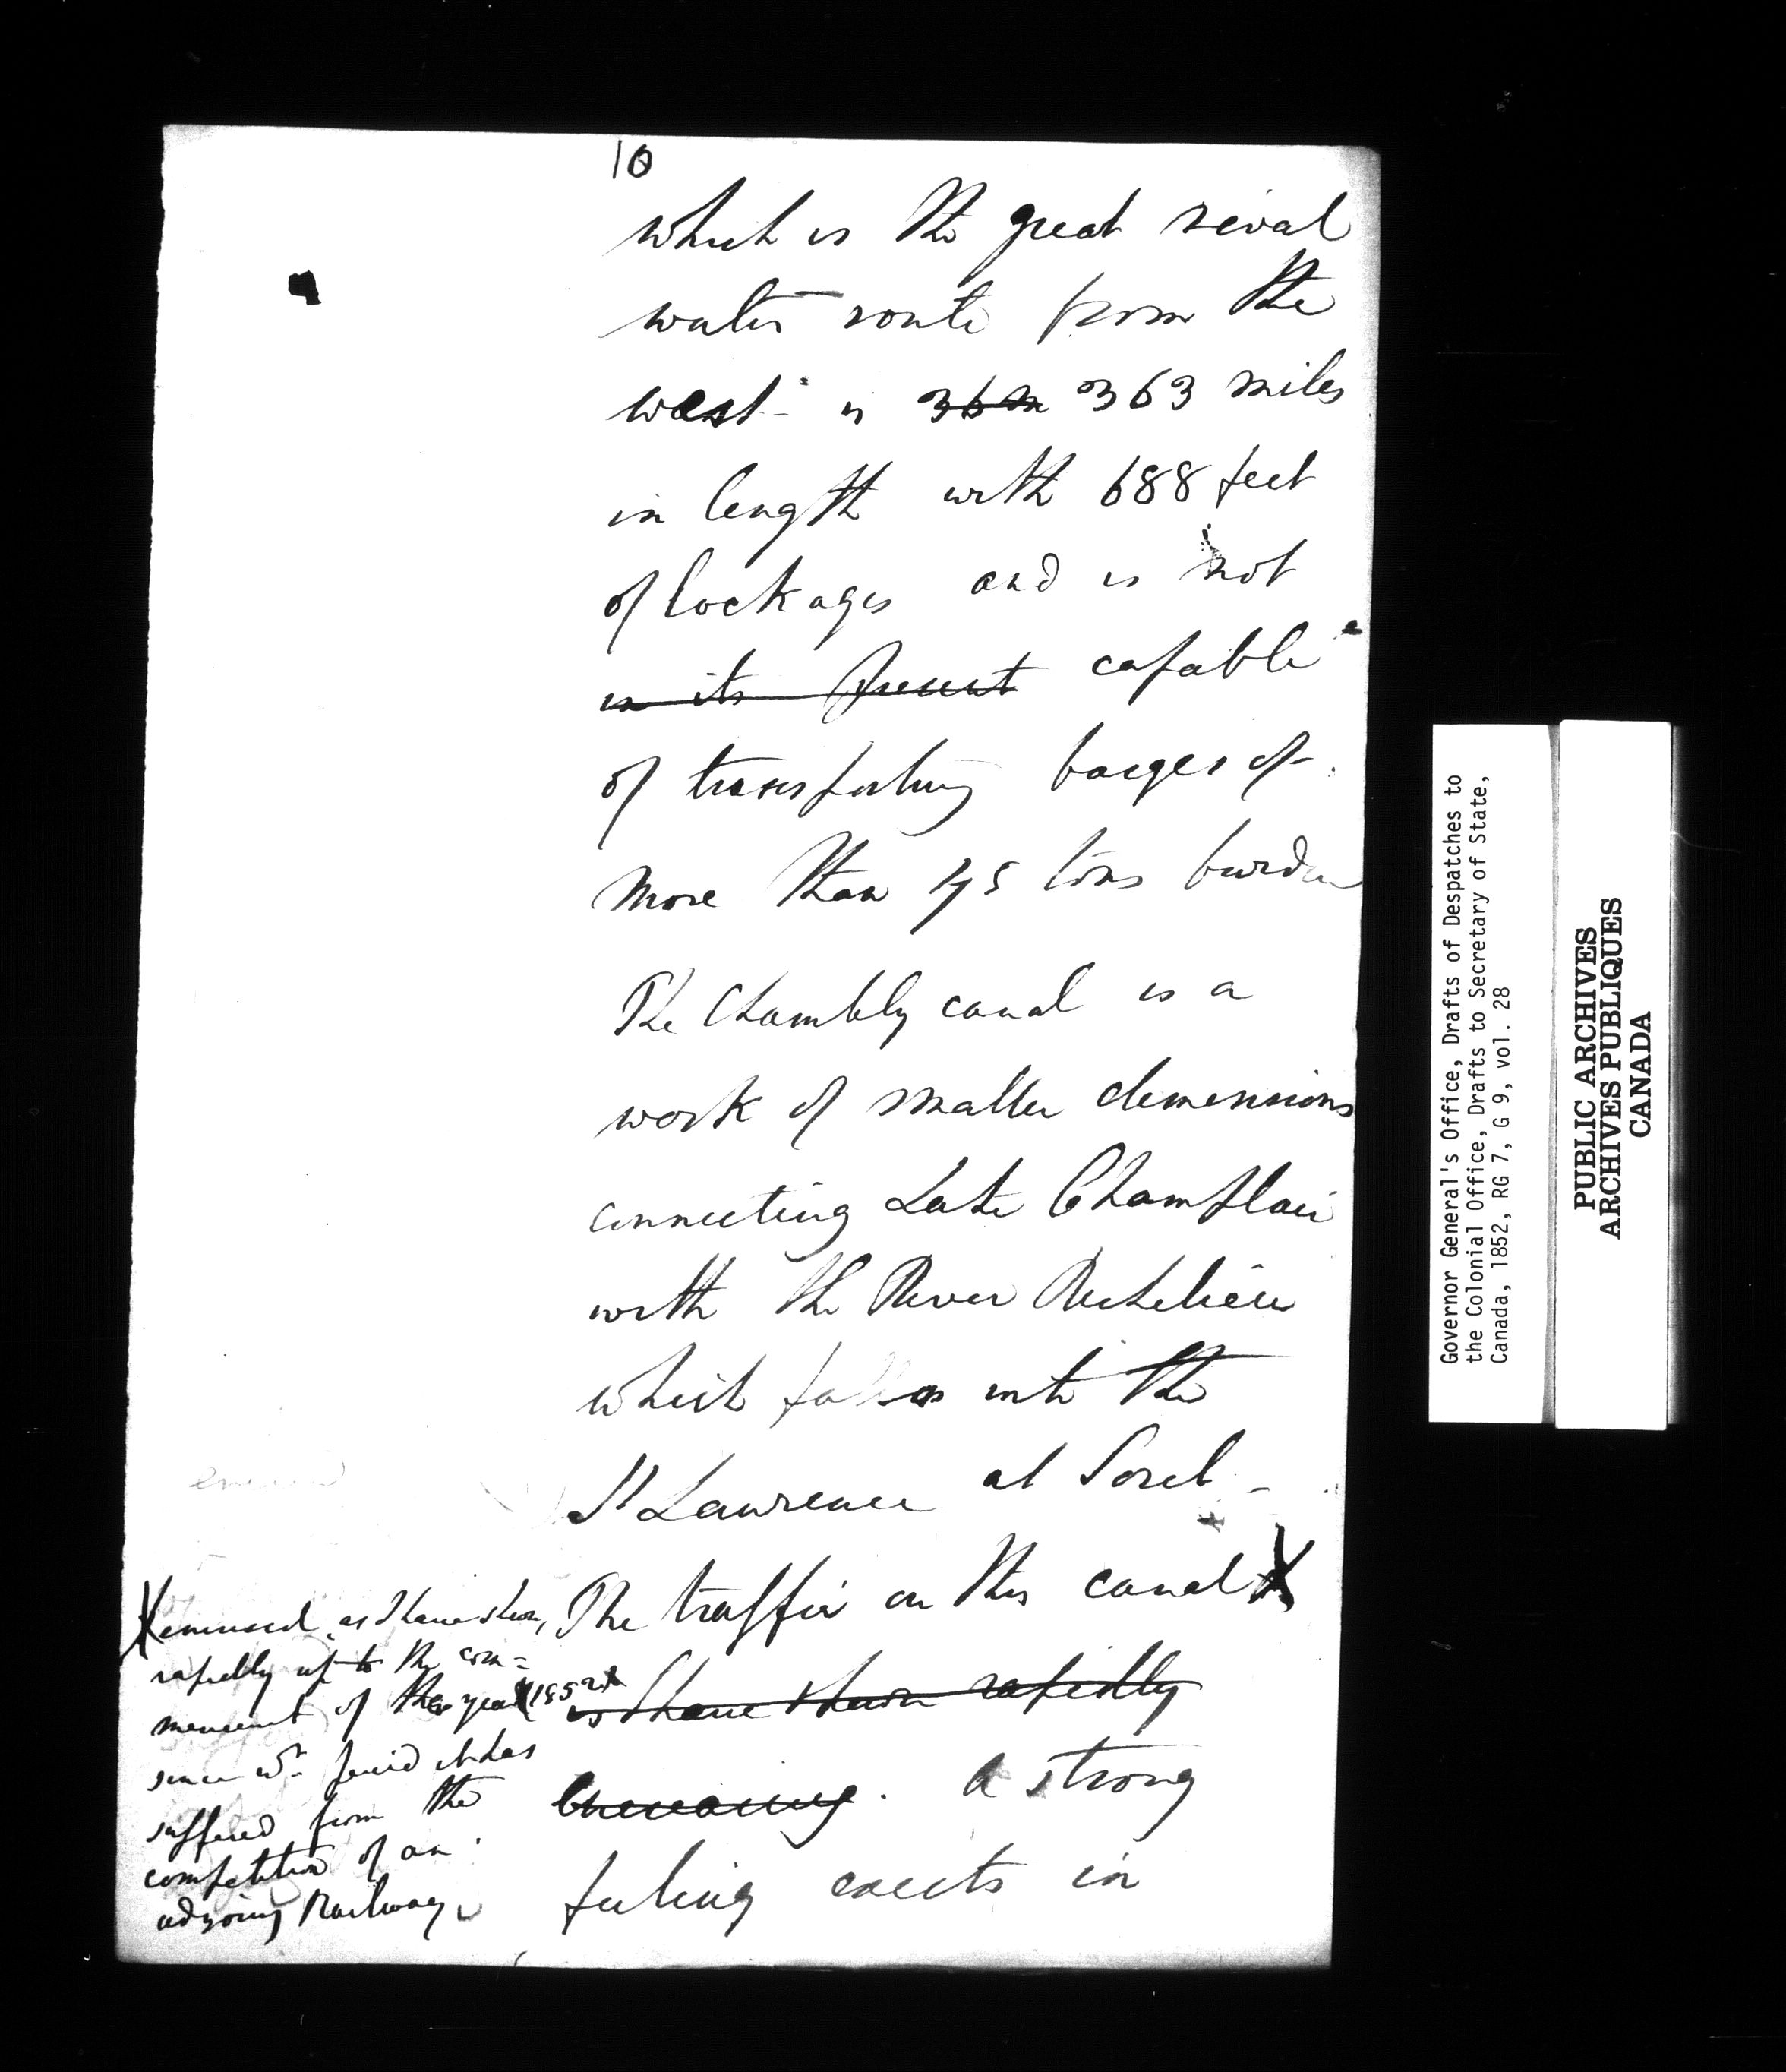 10
which is the great rival
water route from the
west is 363 miles
in length with 688 feet
of lockages and is not
in its present capable
of transporting barges of
more than 75 tons burden
The Chambly canal is a
work of smaller dimensions
connecting Lake Champlain
with the River Richelieu
which falls into the
St Lawrence at Sorel -
The traffic on this canal X
as I have shewn rapidly
increasing. A strong
feeling exists in
X increased, as I have shewn,
rapidly up to the com=
mencement of the year (1852)
since wh. period it has
suffered from the
competition of an
adjoining Railway.
Governor General's Office, Drafts of Despatches to
the Colonial Office, Drafts to Secretary of State,
Canada, 1852, RG 7, G 9, vol. 28
PUBLIC ARCHIVES
ARCHIVES PUBLIQUES
CANADA